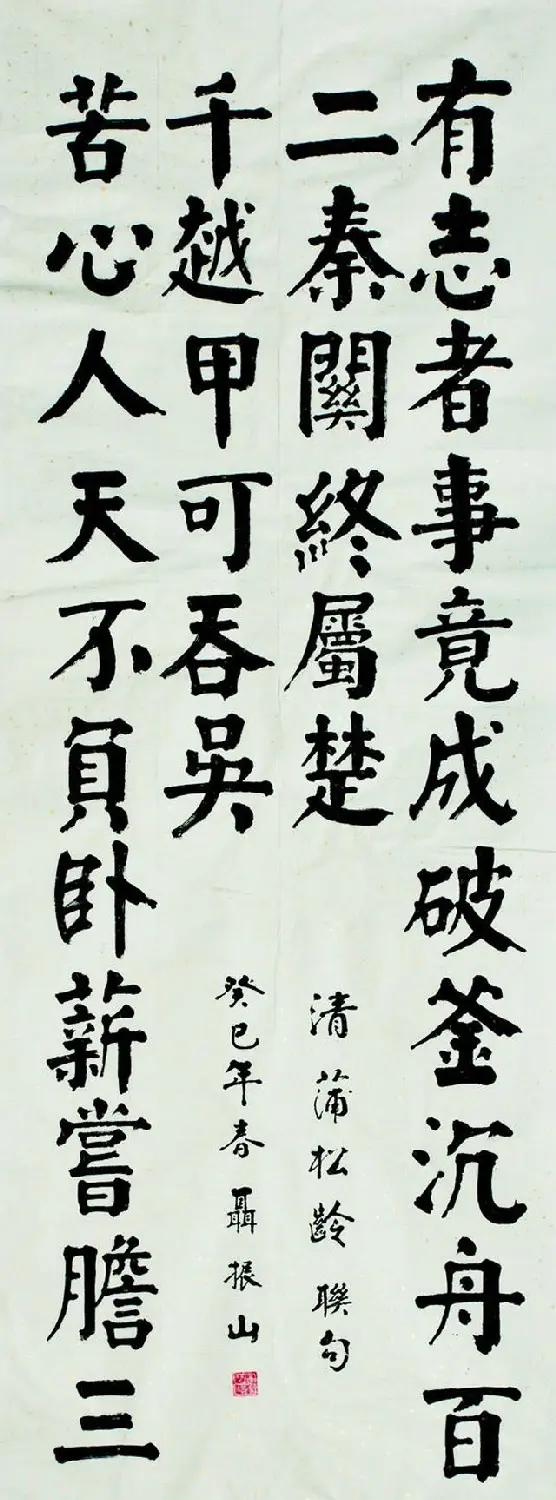 有志者事竟成破釜沉舟百
二秦關終屬楚
清蒲松齡聯句
苦心人天不負卧薪嘗膽三
千越甲可吞吳
癸巳年春聶振山